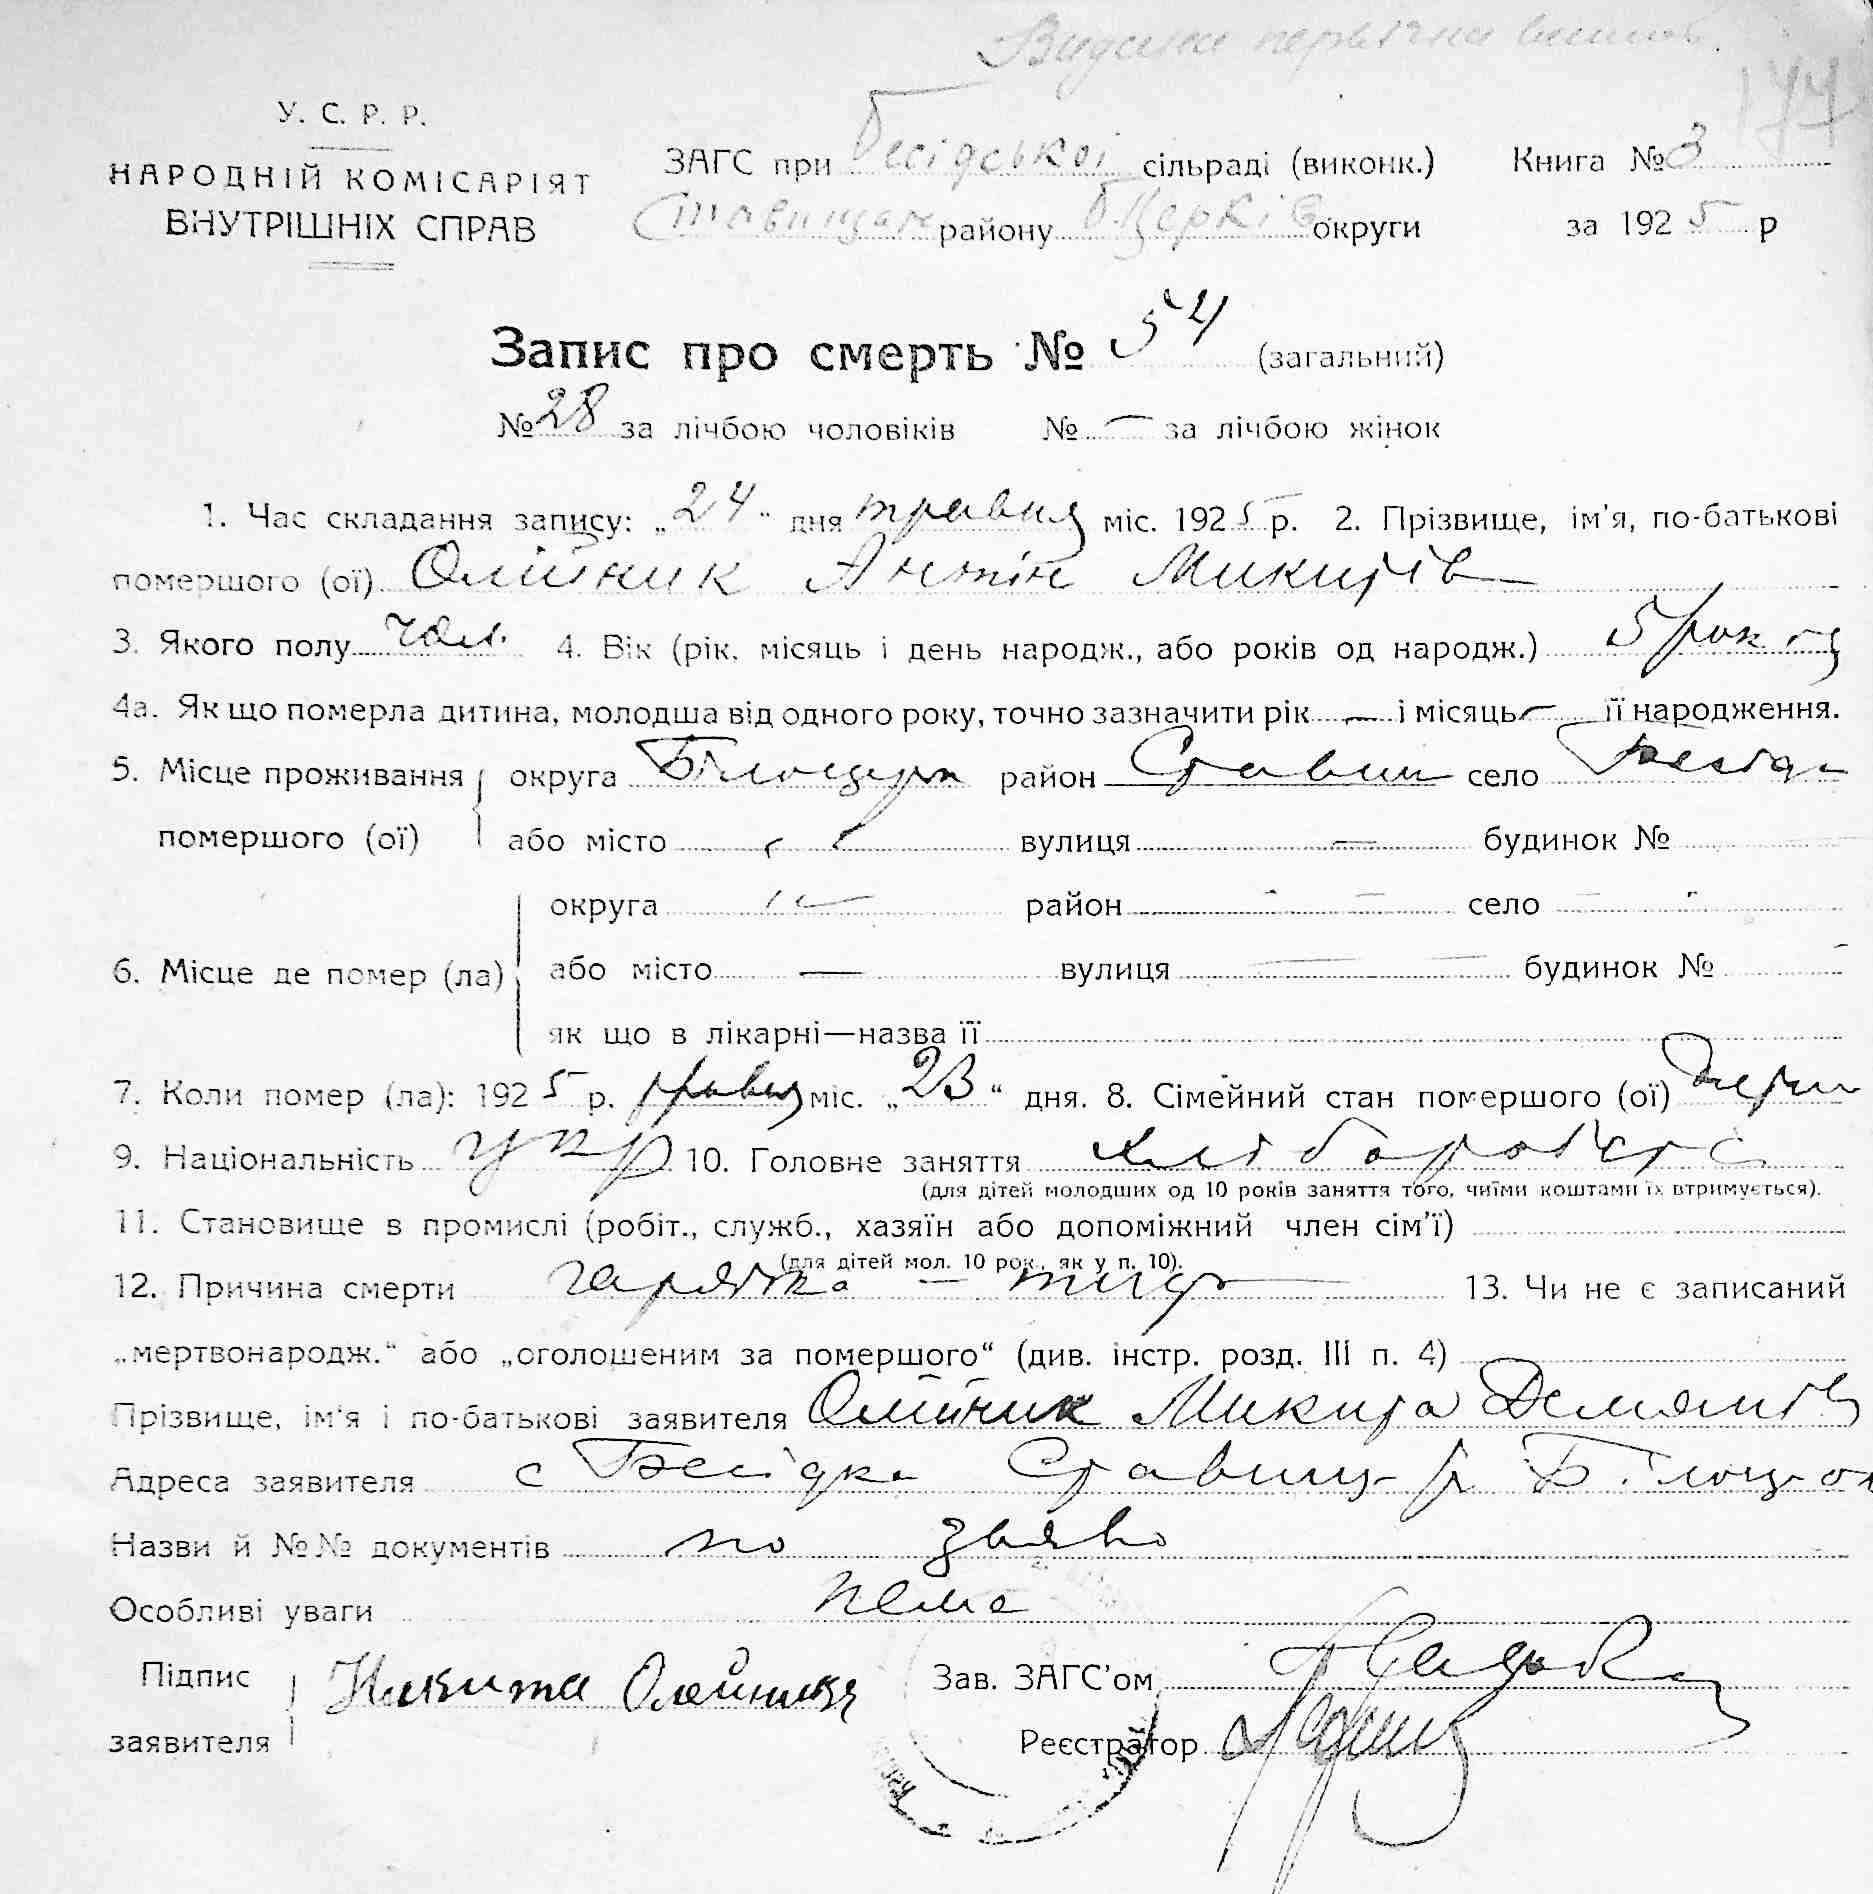 Видана первічна випись
177
У. С. Р. Р.
НАРОДНІЙ КОМІСАРІЯТ
ВНУТРІШНІХ СПРАВ
ЗАГС при Бесідської сільраді (виконк.) Книга № 3
Ставищан району Б.Церків округи за 1925 р
Запис про смерть № 54 (загальний)
№ 28 за лічбою чоловіків № — за лічбою жінок
1. Час складання запису: „24“ дня травня міс. 1925 р. 2. Прізвище, ім'я, по-батькові
помершого (ої) Олійник Антін Микитів
3. Якого полу чол. 4. Вік (рік, місяць і день народж., або років од народж.) 5 рок
4а. Як що померла дитина, молодша від одного року, точно зазначити рік — і місяць — її народження.
5. Місце проживання округа Білоцерк район Ставищ село Бесідка
помершого (ої) або місто — вулиця — будинок №
округа — район — село —
6. Місце де помер (ла) або місто — вулиця — будинок № —
як що в лікарні—назва її
7. Коли помер (ла): 1925 р. травня міс. „23“ дня. 8. Сімейний стан помершого (ої)
9. Національність укр 10. Головне заняття хліборобство
(для дітей молодших од 10 років заняття того, чиїми коштами їх втримується).
11. Становище в промислі (робіт., служб., хазяїн або допоміжний член сім'ї)
(для дітей мол. 10 рок., як у п. 10).
12. Причина смерти гарячка — тиф 13. Чи не є записаний
„мертвонародж.“ або „оголошеним за помершого“ (див. інстр. розд. III п. 4)
Прізвище, ім'я і по-батькові заявителя Олійник Микита Демянів
Адреса заявителя с Бесідка Ставищ- р Білоц- ок
Назви й №№ документів по заяві
Особливі уваги нема
Підпис Никита Олейник Зав. ЗАГС'ом
заявителя Реєстратор